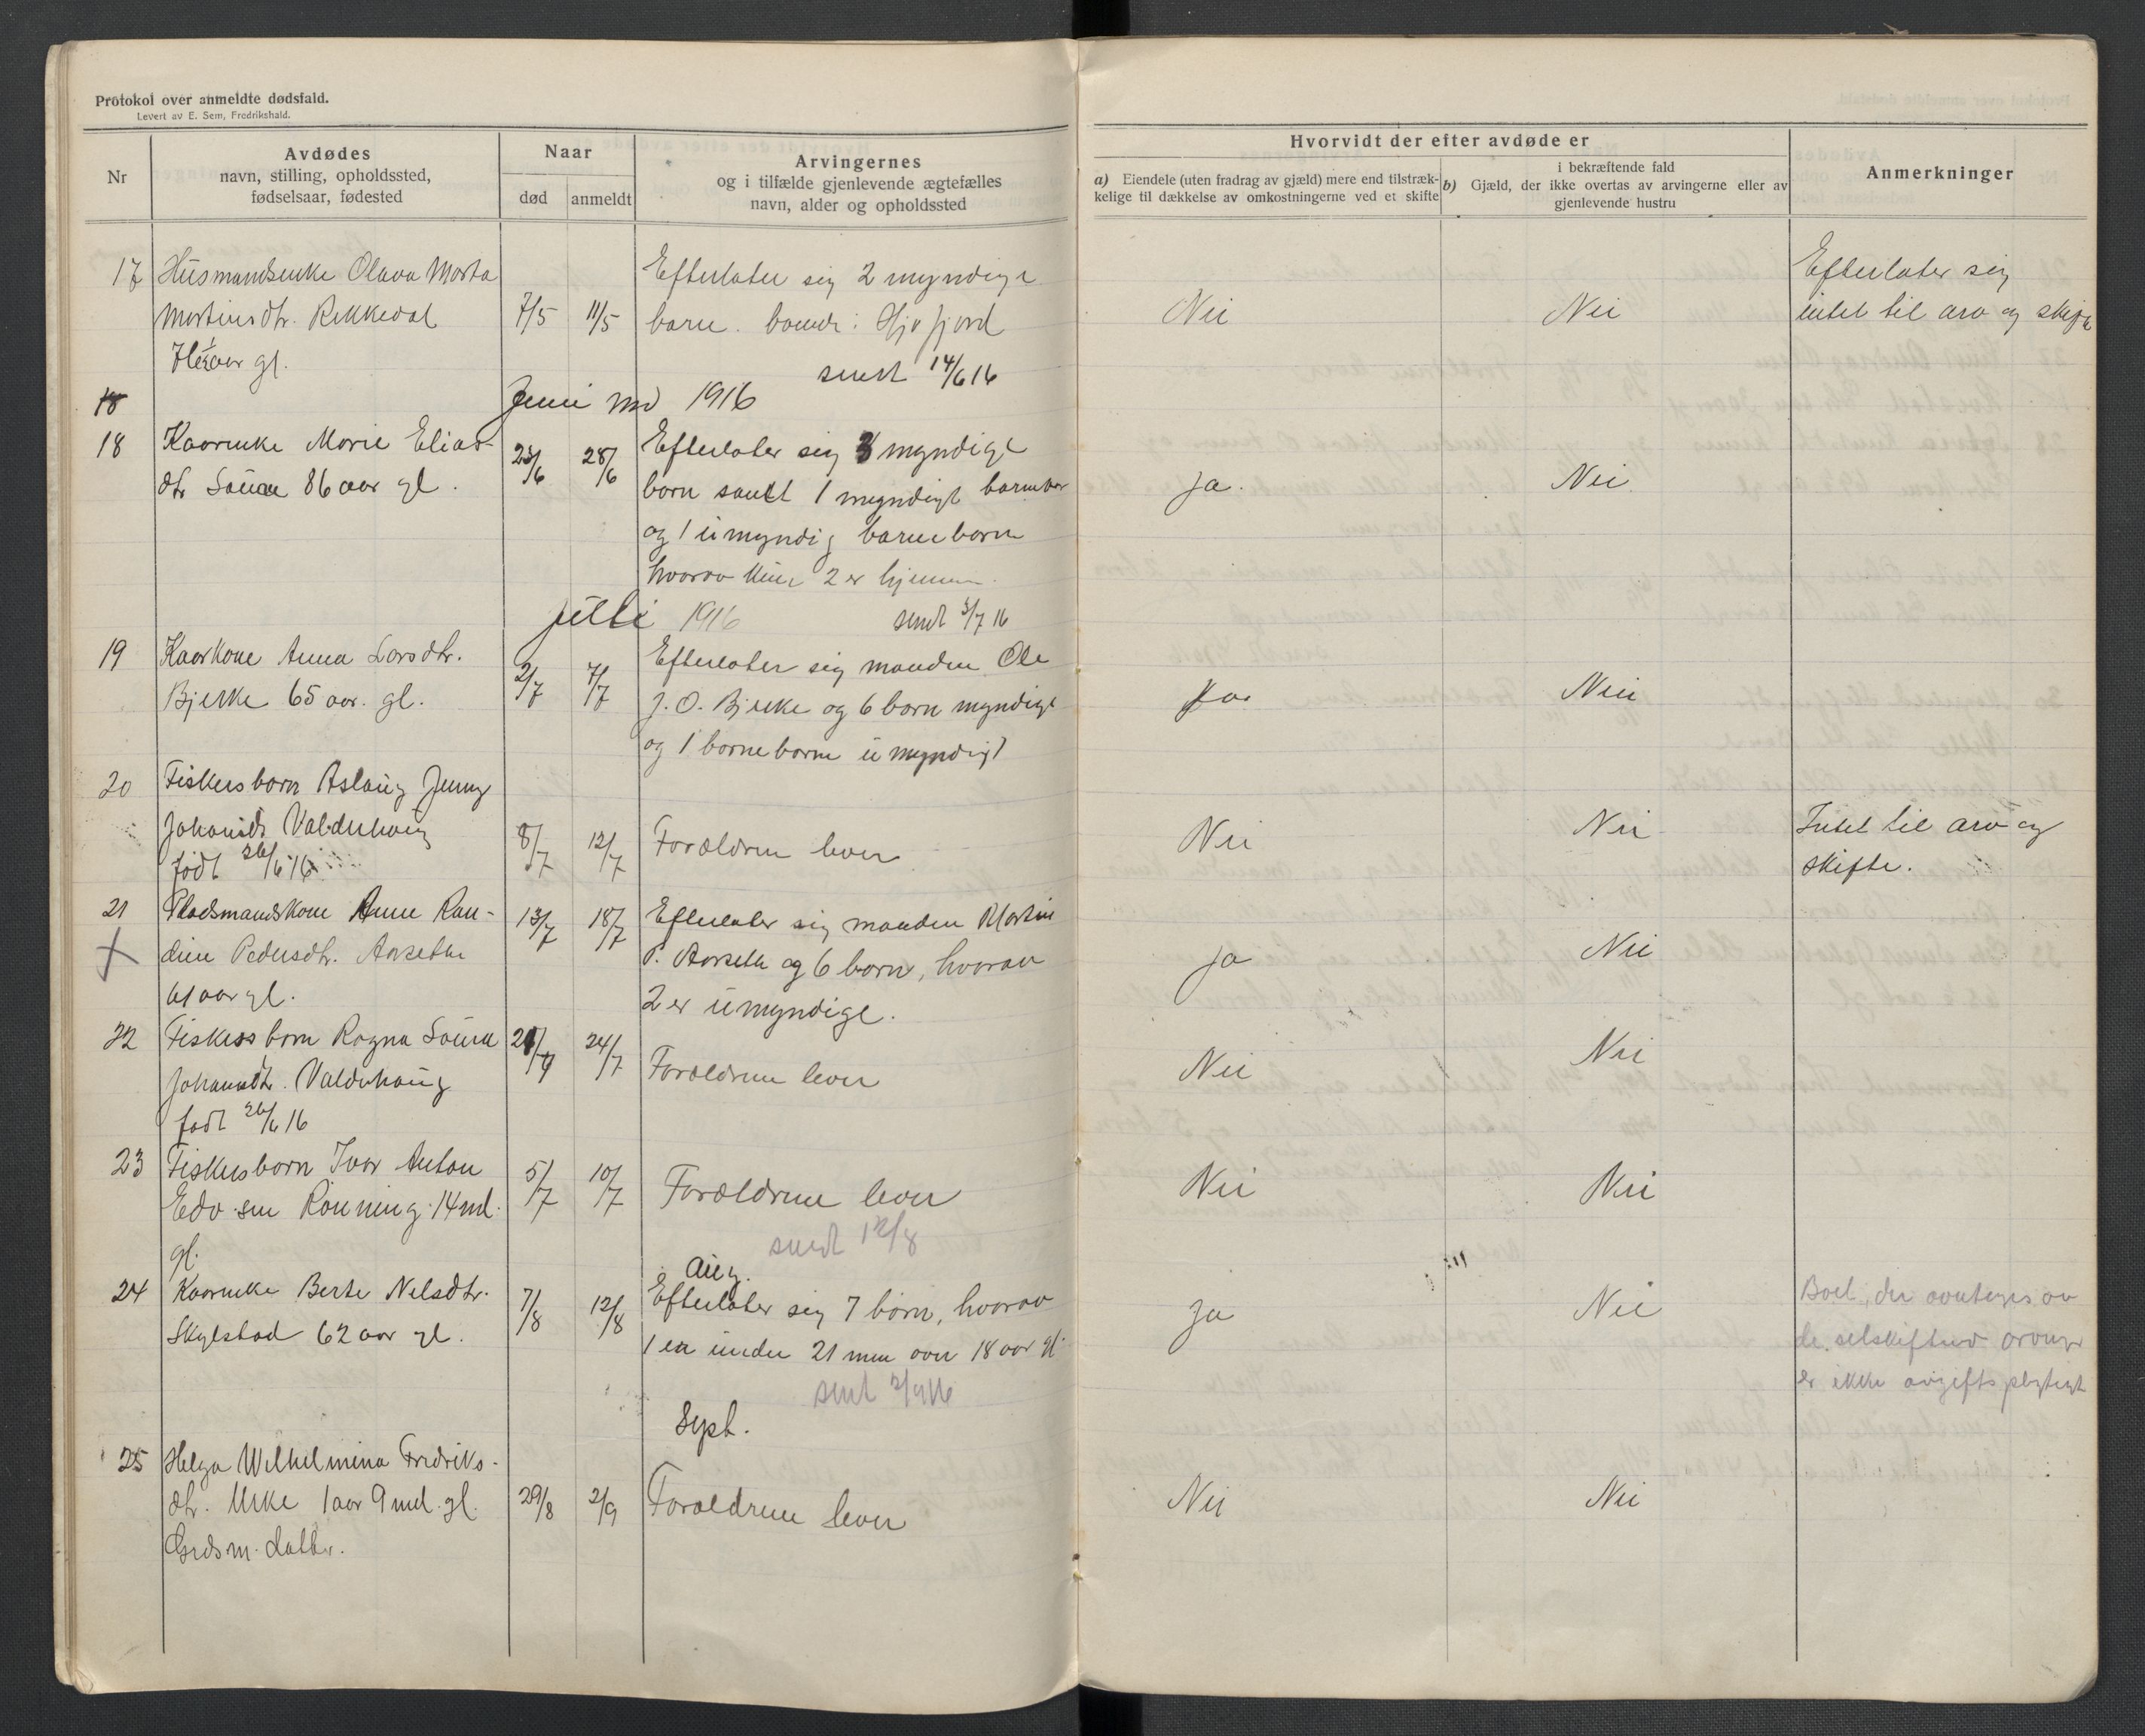 Protokol over anmeldte dødsfald.
Levert av E. Sem, Fredrikshald.
Nr
Avdødes
navn, stilling, opholdssted,
fødselsaar, fødested
Naar
død
anmeldt
Arvingernes
og i tilfælde gjenlevende ægtefælles
navn, alder og opholdssted
Hvorvidt der efter avdøde er
a) Eiendele (uten fradrag av gjæld) mere end tilstræk-
kelige til dækkelse av omkostningerne ved et skifte
i bekræftende fald
b) Gjæld, der ikke overtas av arvingerne eller av
gjenlevende hustru
Anmerkninger
17 Husmandsenke Olava Marta
Martinsdtr. Rekkedal
aar gl.
7/5 11/5
Efterlater sig 2 myndige
barn.
sendt 14/6 16
Nei
Nei
Efterlater sig
intet til arv og skifte
18
Juni md 1916
18 Kaarenke Marie Elias-
dtr 86 aar gl.
23/6 28/6
Efterlater sig 3 myndige
born samt 1 myndigt barnebar
og 1 umyndig barnebarn
hvorav kun 2 er hjemme.
Ja.
Nei
Juli 1916
sendt 3/7 16
19 Kaarkone Anna Larsdtr.
Bjerke 65 aar. gl.
2/7 7/7
Efterlater sig manden Ole
J. O. Bjerke og 6 barn myndige
og 1 barnebarn umyndigt
Ja
Nei
20 Fiskersbarn Aslaug Jenny
Johansdtr Valderhaug
født 26/6 16
8/7 12/7
Forældrene lever
Nei
Nei
Intet til arv og
skifte.
21 Pladsmandskone Anne Ran-
dine Pedersdtr. Aarseth
61 aar gl.
13/7 18/7
Efterlater sig manden Martin
P. Aarseth og 6 born, hvorav
2 er umyndige.
Ja
Nei
22 Fiskersbarn Ragna
Johansdtr. Valderhaug
født 26/6 16
24/7
Forældrene lever
Nei
Nei
23 Fiskersbarn Ivar Anton
Edv.sen Rønning 14 md.
gl.
5/7 10/7
Forældrene lever
sendt 12/8
Nei
Nei
Aug.
24 Kaarenke Berte Nelsdtr.
Skylstad 62 aar gl.
7/8 12/8
Efterlater sig 7 børn, hvorav
1 er under 21 men over 18 aar gl.
sent 2/9 16
Ja
Nei
Boet, der overtages av
de selskiftend arvinge
er ikke avgiftspligtigt
Sept.
25 Helga Wilhelmina Fredriks-
dtr. Urke 1 aar 9 md. gl.
Grdsm. datter.
29/8 2/9
Forældrene lever
Nei
Nei